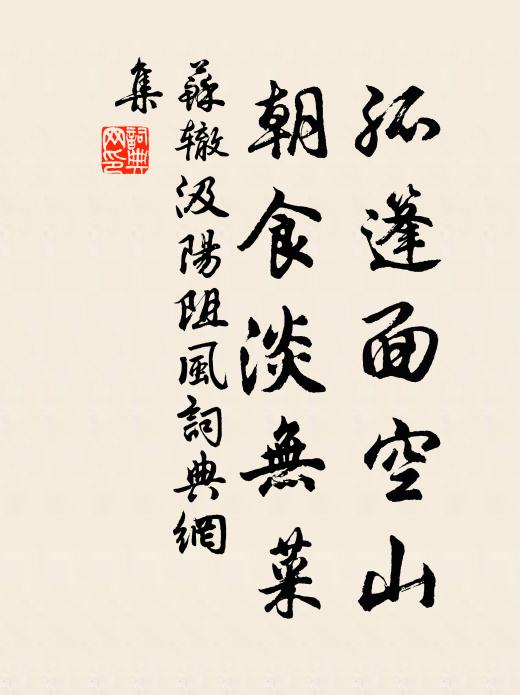 孤篷面空山
朝食淡無菜
蘇辙汲陽阻風詞典網
集
詞典
网印